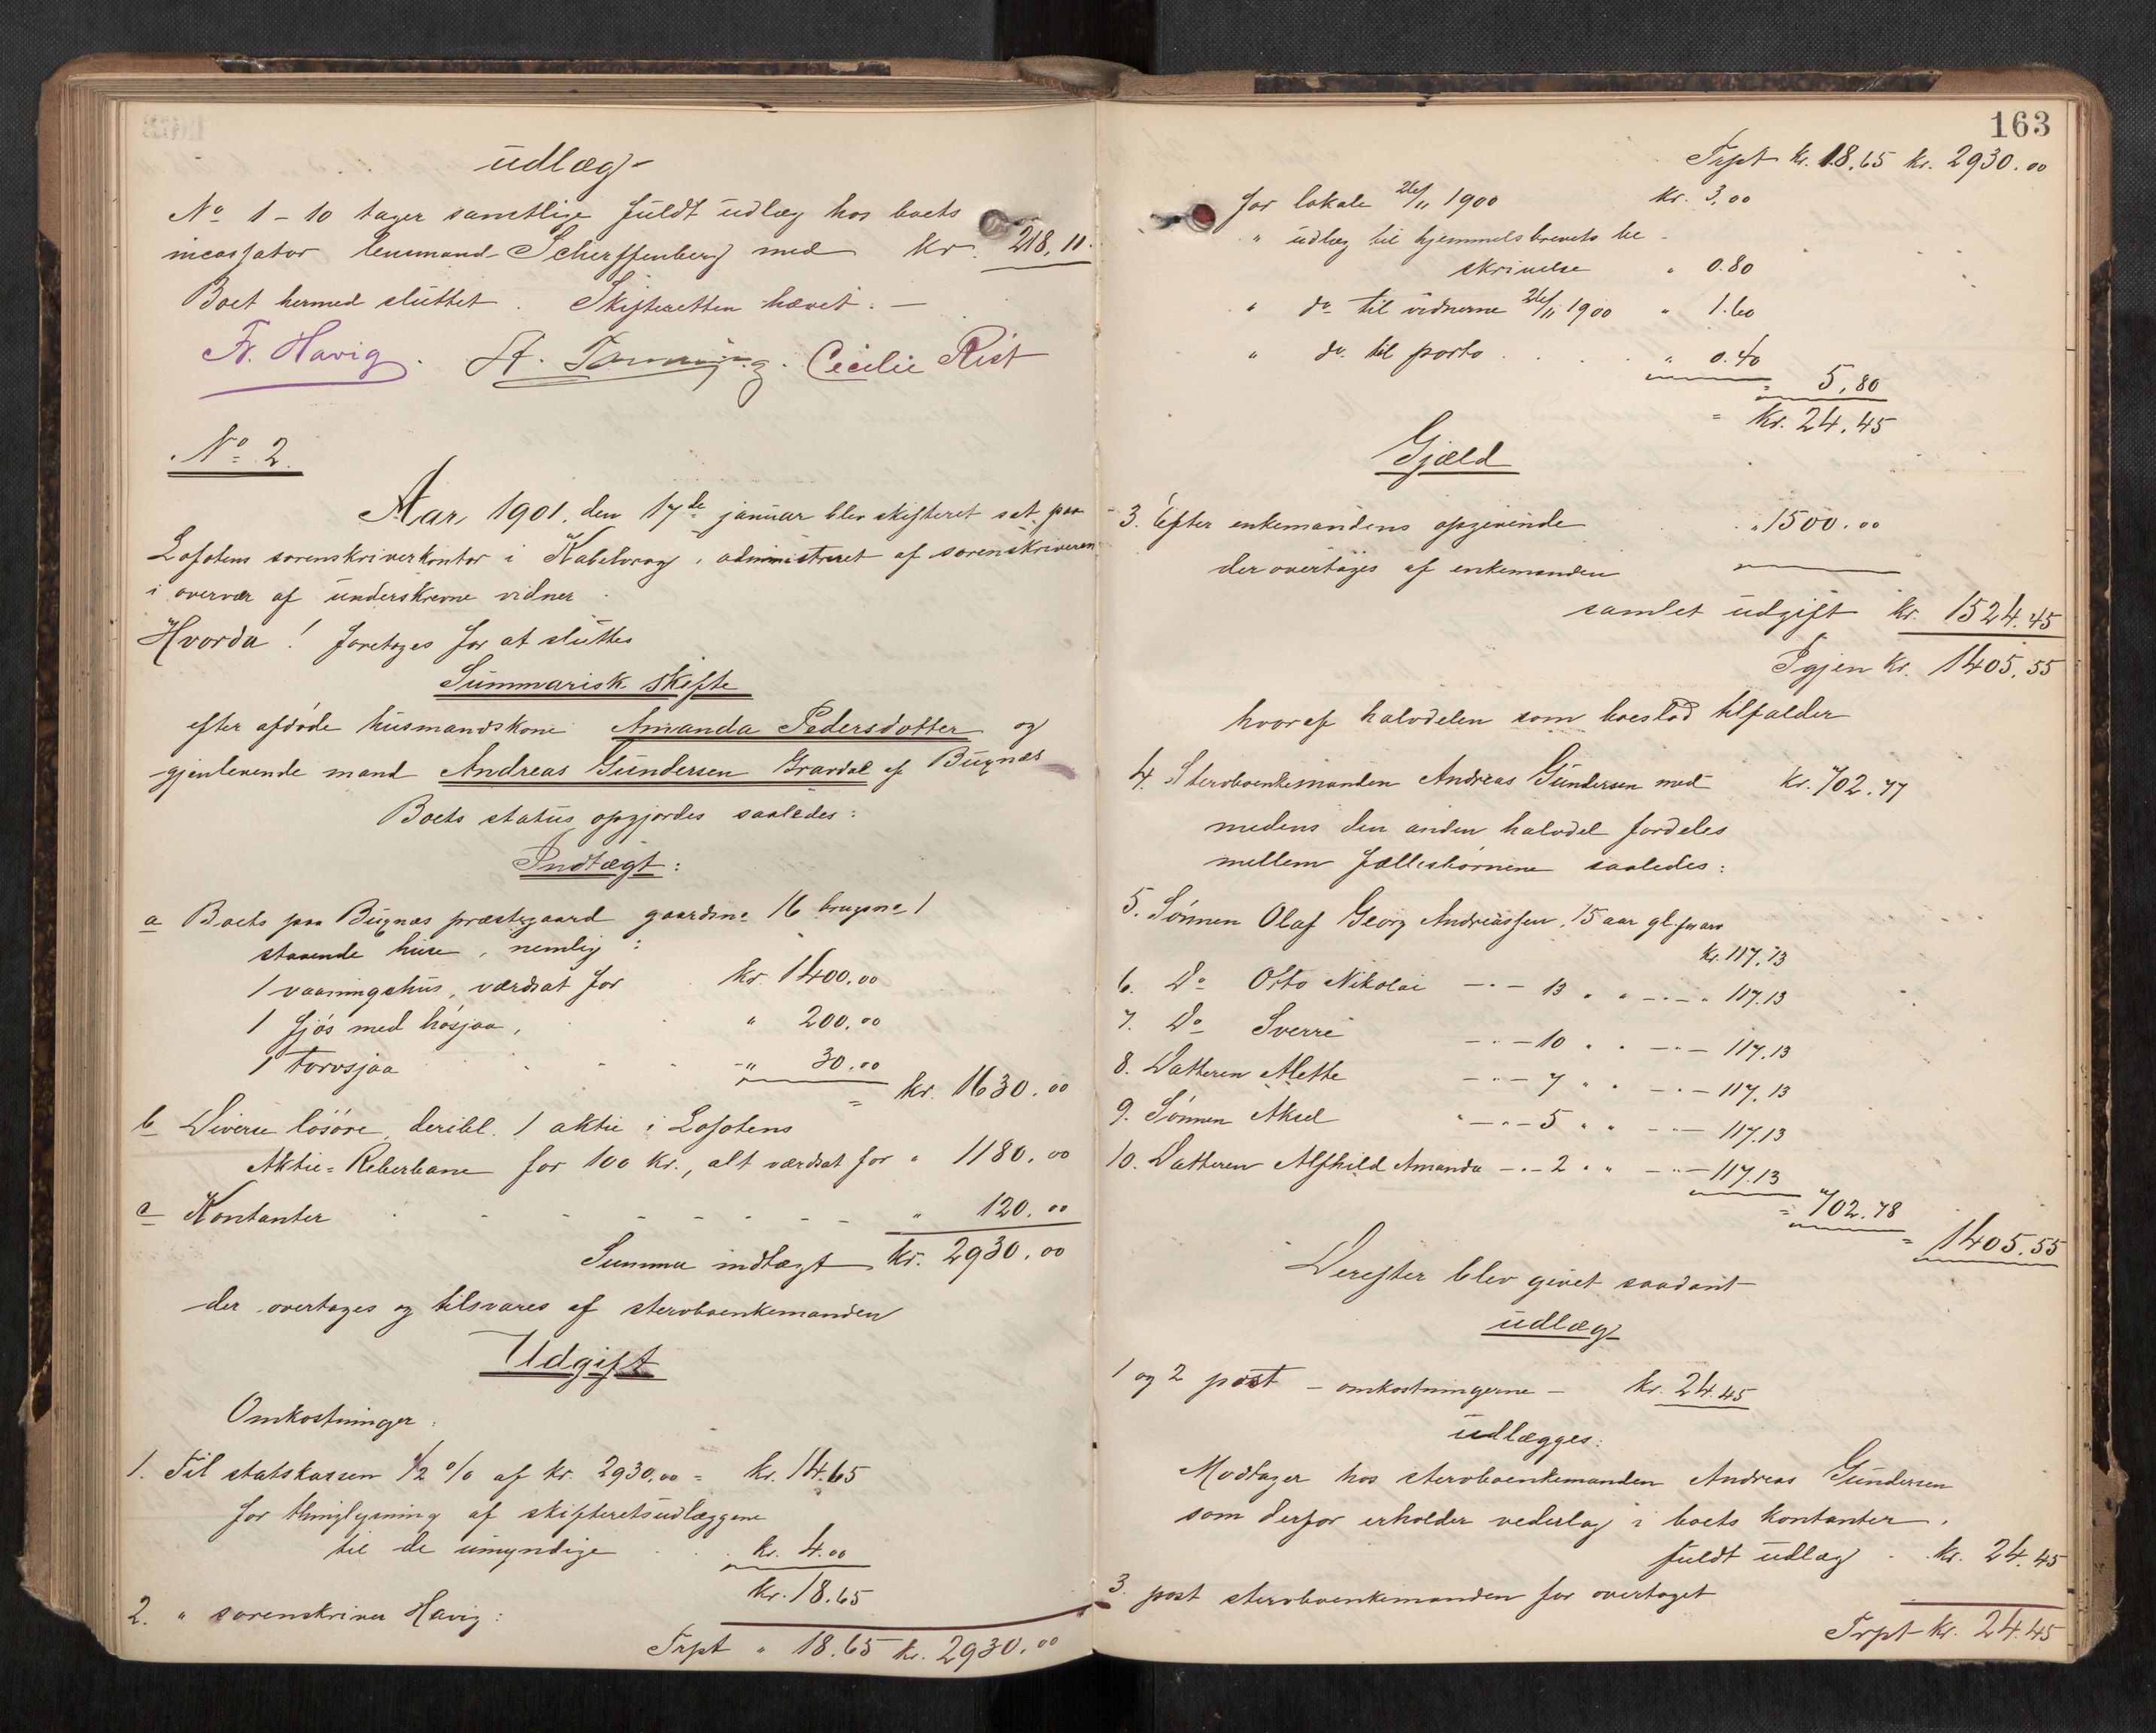 udlæg
No 1 - 10 tager samtlige fuldt udlæg hos boets
incassator lensmand Scherffenberg med kr. 218,11.
Boet hermed sluttet. Skifteretten hævet. —
Fr. Havig. Cecilie Rist
No 2.
Aar 1901, den 17de januar blev skifteret sat paa
Lofotens sorenskriverkontor i Kabelvaag, administreret af sorenskriveren
i overvær af underskrevne vidner.
Hvorda! foretages for at sluttes
Summarisk skifte
efter afdøde husmandskone Amanda Pedersdotter og
gjenlevende mand Andreas Gundersen Gravdal af Buxnæs
Boets status opgjordes saaledes:
Indtægt:
a Boets paa Buxnæs præstegaard gaardsno 16 brugsno 1
staaende huse, nemlig:
1 vaaningshus, værdsat for kr. 1400.00
1 fjøs med høsjaa, " 200.00
1 torvsjaa " 30.00
= kr. 1630.00
b Diverse løsøre, deribl. 1 aktie i Lofotens
Aktie-Reberbane for 100 kr., alt værdsat for " 1180.00
c Kontanter " 120.00
Summa indtægt kr. 2930.00
der overtages og tilsvares af stervboenkemanden
Udgift
Omkostninger:
1. Til statskassen 1/2 % af kr. 2930.00 = kr. 14.65
for thinglysning af skifteretsudlæggene
til de umyndige kr. 4.00
kr. 18.65
2. " sorenskriver Havig:
Trpt " 18.65 kr. 2930.00
163
Trpt kr. 18.65 kr. 2930.00
for lokale 26/11 1900 kr. 3,00
" udlæg til hjemmelsbrevets be-
skrivelse " 0.80
" do til vidnerne 26/11 1900 " 1.60
" do til porto " 0.40
= 5,80
= kr. 24.45
Gjæld
3. Efter enkemandens opgivende " 1500.00
der overtages af enkemanden
samlet udgift kr. 1524.45
Igjen kr. 1405.55
hvoraf halvdelen som boeslod tilfalder
4. Stervboenkemanden Andreas Gundersen med kr. 702.77
medens den anden halvdel fordeles
mellem fællesbørnene saaledes:
5. Sønnen Olaf Georg Andreassen, 15 aar gl. for arv
kr. 117.13
6. Do Otto Nikolai -"- 13 " " -"- " 117.13
7. Do Sverre -"- 10 " " -"- 117.13
8. Datteren Alette -"- 7 " " -"- 117.13
9. Sønnen Aksel -"- 5 " " -"- 117.13
10. Datteren Alfhild Amanda -"- 2 " " -"- 117.13
= 702.78
= 1405.55
Derefter blev givet saadant
udlæg
1 og 2 post - omkostningerne - kr. 24.45
udlægges:
Modtager hos stervboenkemanden Andreas Gundersen
som derfor erholder vederlag i boets kontanter.
fuldt udlæg kr. 24.45
3. post stervboenkemanden for overtaget
Trpt kr. 24.45